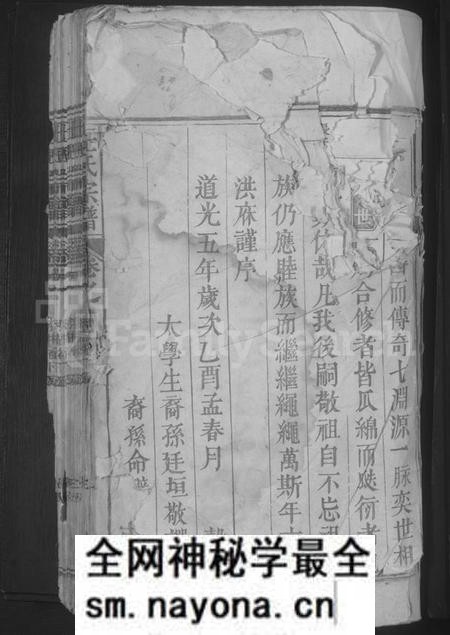 而傳奇七淵源一脉奕世相
世
合修者皆瓜綿而瓞衍者
休哉凡我後嗣敬祖自不忘祖
族仍應睦族而繼繼繩繩萬斯年
洪庥謹序
道光五年歲次乙酉孟春月
太學生裔孫廷垣敬
裔孫命
氏宗譜
FamilySearch
全网神秘学最全
sm.nayona.cn